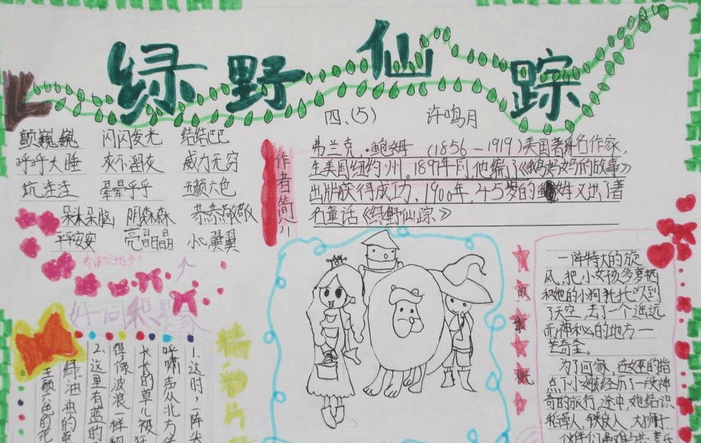 绿野仙踪
四、(5) 许鸣月
颤巍巍 闪闪发光 结结巴巴
呼呼大睡 夜不闭夜 威力无穷
坑洼洼 晕晕乎乎 五颜六色
呆头呆脑 阴森森 恭恭敬敬
平平安安 亮晶晶 小心翼翼
好词积累家
作者简介
弗兰克·鲍姆 (1856-1919)美国著名作家,
生美国纽约州。1897年间,他编了《鹅妈妈的故事》
出版获得成功,1900年,45岁的鲍姆又出了著
名童话《绿野仙踪》
故事概
一阵特大的旋
风,把小女孩多萝茜
和她的小狗托托吹到
了天空,去了一个遥远
而神秘的地方——
芒奇金。
为了回家,在女巫的指
点下小女孩经历了一段神
奇的旅行,途中,她结识
稻草人、铁皮人、大狮子
精彩片
1.这时,一阵尖
呼啸声从北方传
长长的草儿被狂
得像波浪一样翻
2.这里有蓝的
绿油油的草
五颜六色的花